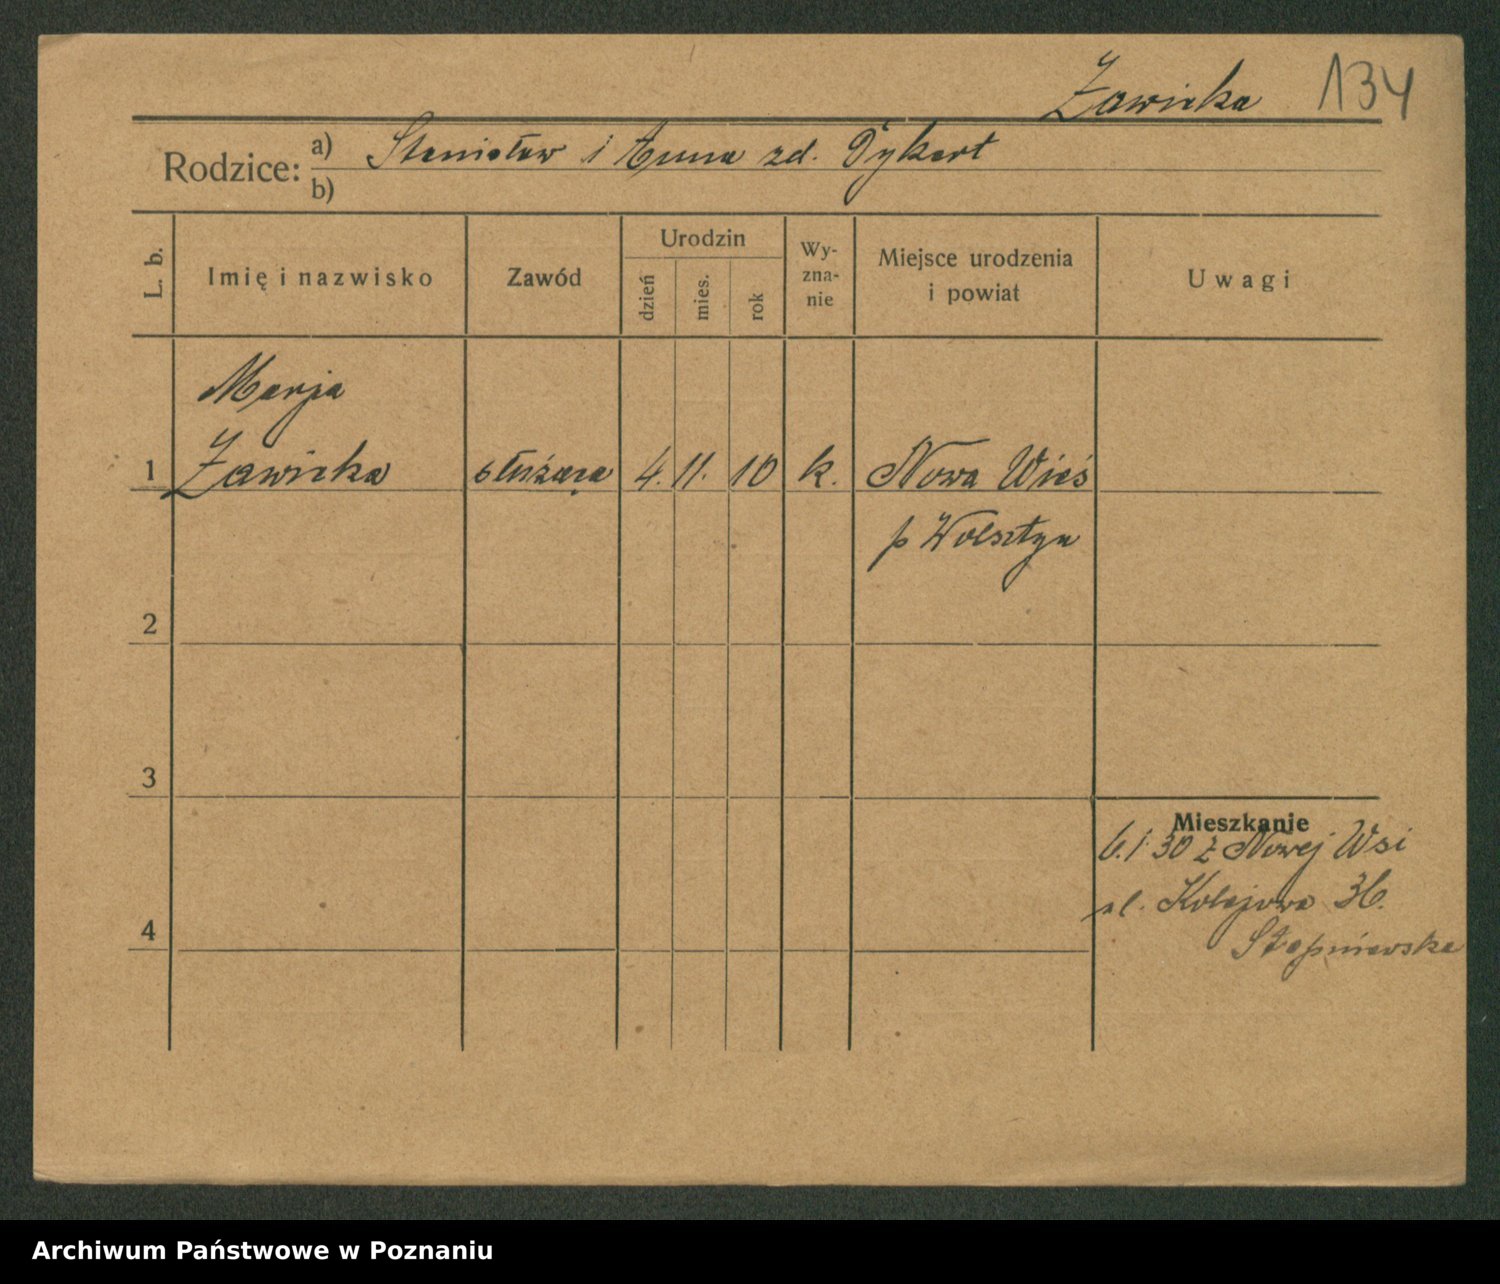 Żawicka 134
Rodzice: a) Stanisław i Anna zd. Dykert
b)
L. b.
Imię i nazwisko
Zawód
Urodzin
dzień
mies.
rok
Wy-
zna-
nie
Miejsce urodzenia
i powiat
Uwagi
Marja
1 Żawicka służąca 4. 11. 10 k. Nowa Wieś
p Wolsztyn
2
3
Mieszkanie
6.1 30 z Nowej Wsi
ul. Kolejowa 36.
4
Archiwum Państwowe w Poznaniu